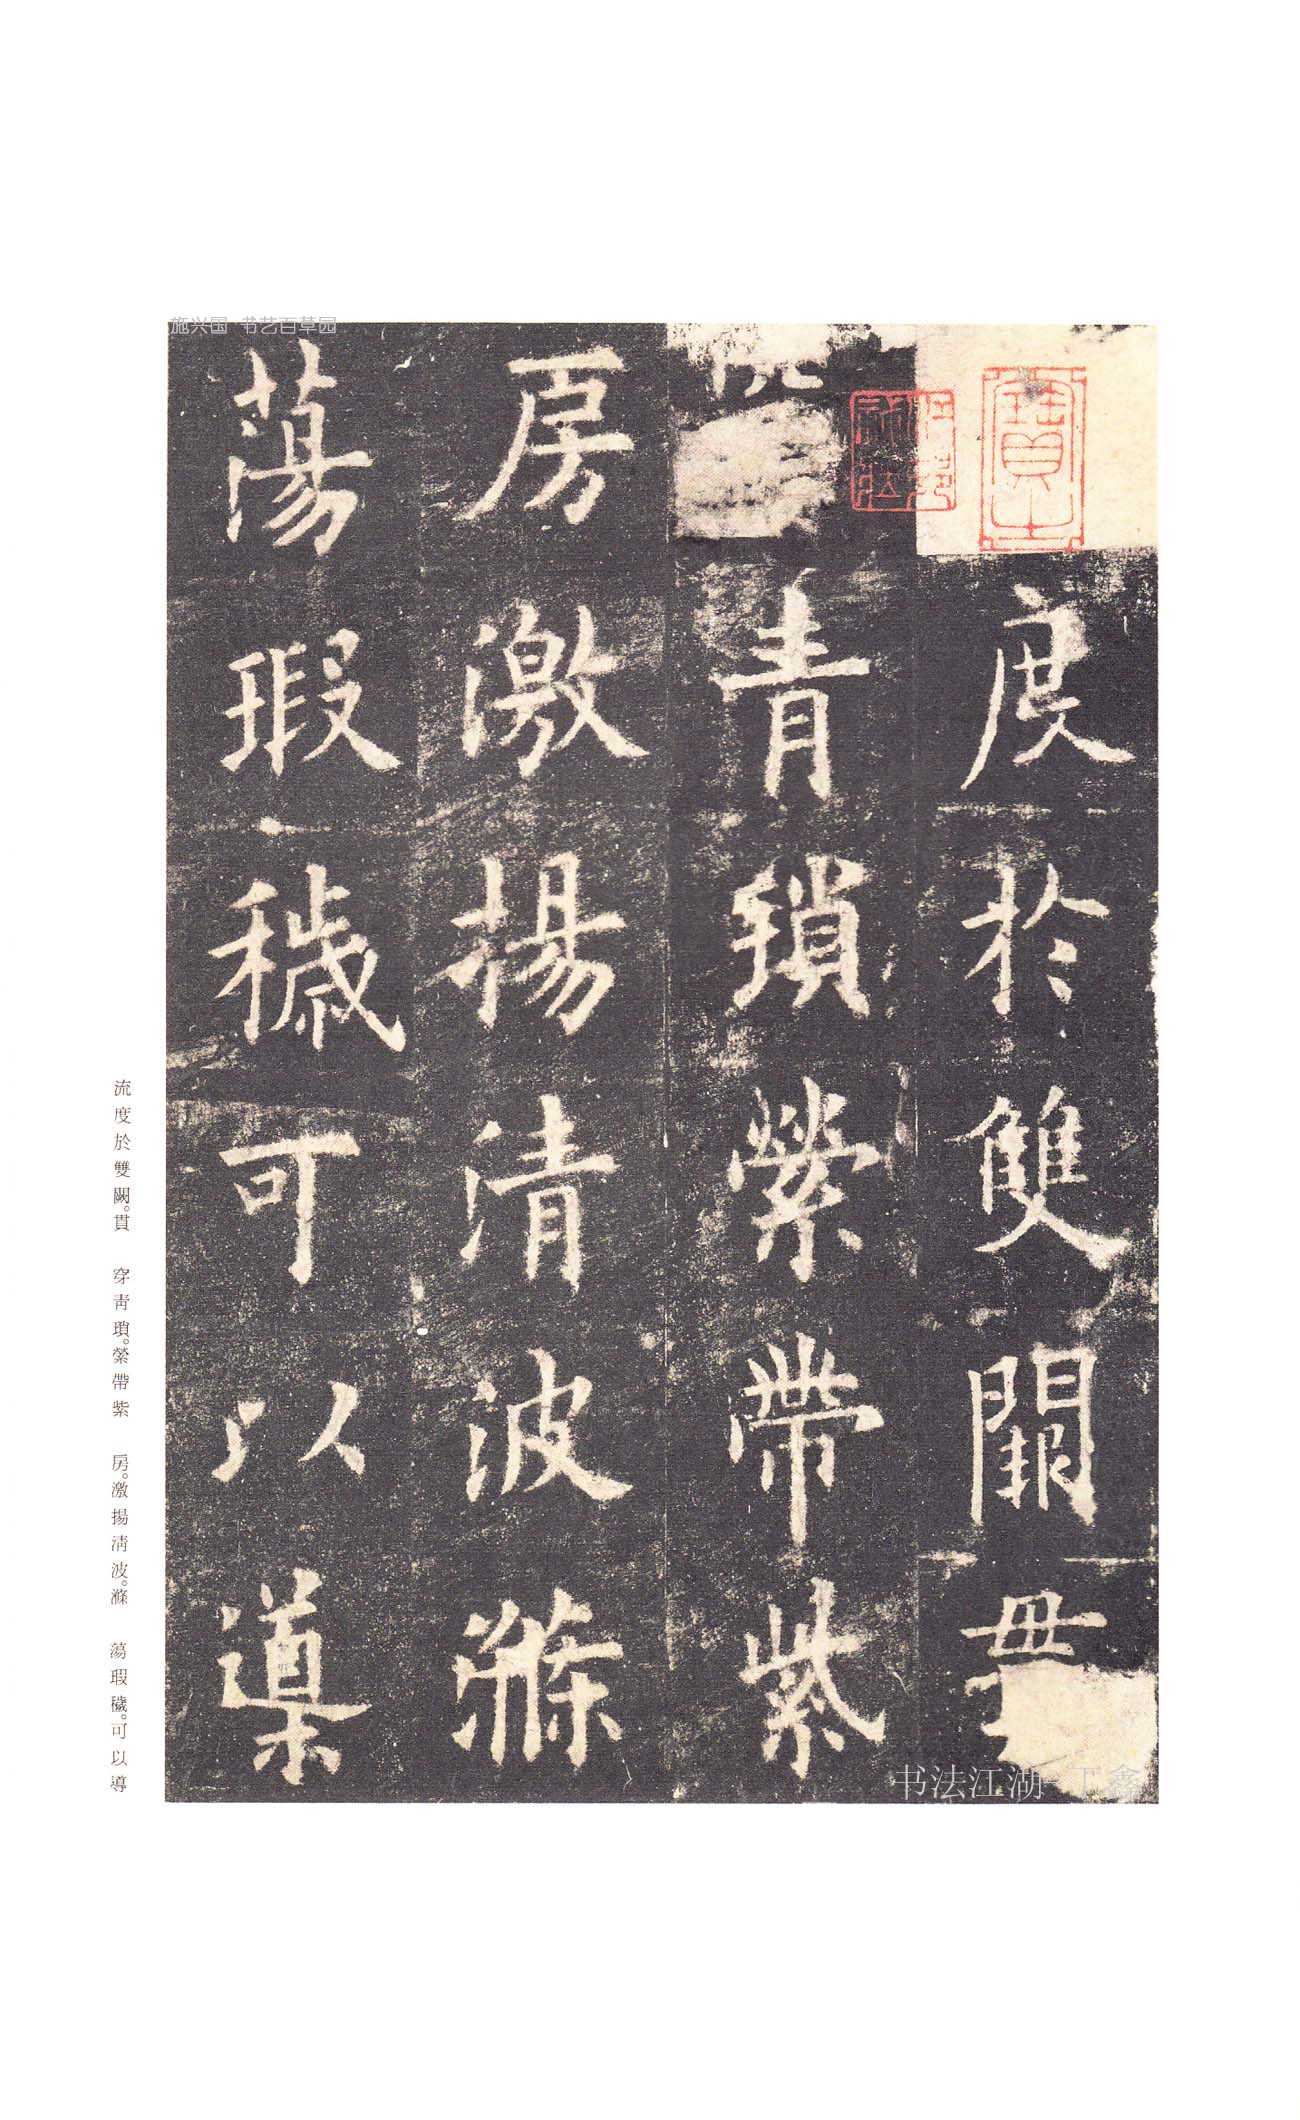 度於雙闕貫
青瑣縈帶紫
房激揚清波滌
蕩瑕穢可以導
流度於雙闕。貫　穿青瑣。縈帶紫　房。激揚清波。滌　蕩瑕穢。可以導
施兴国 书艺百草园
书法江湖 丁鑫